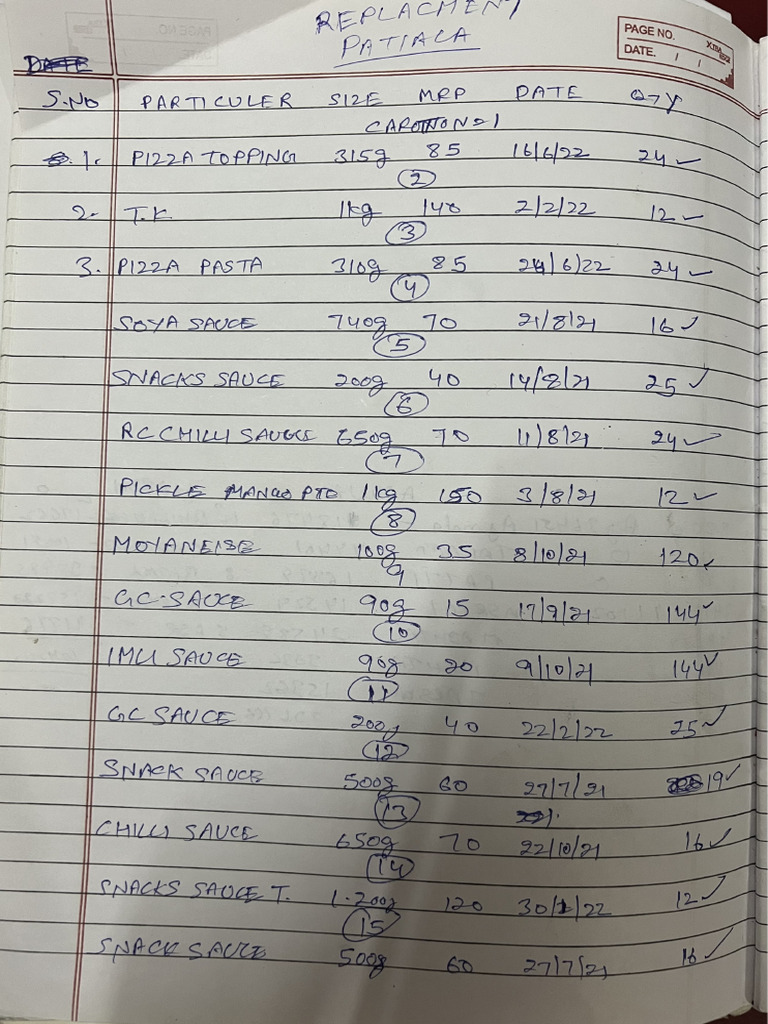 REPLACMENT
PATIALA
PAGE NO.
DATE. / /
DATE
S.NO PARTICULER SIZE MRP DATE QTY
CAROTTON 21
1. PIZZA TOPPING 315g 85 16/6/22 24 ✓
(2)
2. T.K 1kg 140 2/2/22 12 ✓
(3)
3. PIZZA PASTA 310g 85 24/6/22 24 ✓
(4)
SOYA SAUCE 740g 70 21/8/21 16 ✓
(5)
SNACKS SAUCE 200g 40 14/8/21 25 ✓
(6)
RC CHILLI SAUCE 650g 70 11/8/21 24 ✓
(7)
PICKLE MANGO PTC 1kg 150 3/8/21 12 ✓
(8)
MOYANEISE 100g 35 8/10/21 120 ✓
9
GC-SAUCE 90g 15 17/9/21 144 ✓
(10)
IMLI SAUCE 90g 20 9/10/21 144 ✓
(11)
GC SAUCE 200g 40 22/2/22 25 ✓
(12)
SNACK SAUCE 500g 60 27/7/21 19 ✓
(13)
CHILLI SAUCE 650g 70 22/10/21 16 ✓
(14)
SNACKS SAUCE T. 1.200g 120 30/1/22 12 ✓
(15)
SNACK SAUCE 500g 60 27/7/21 16 ✓